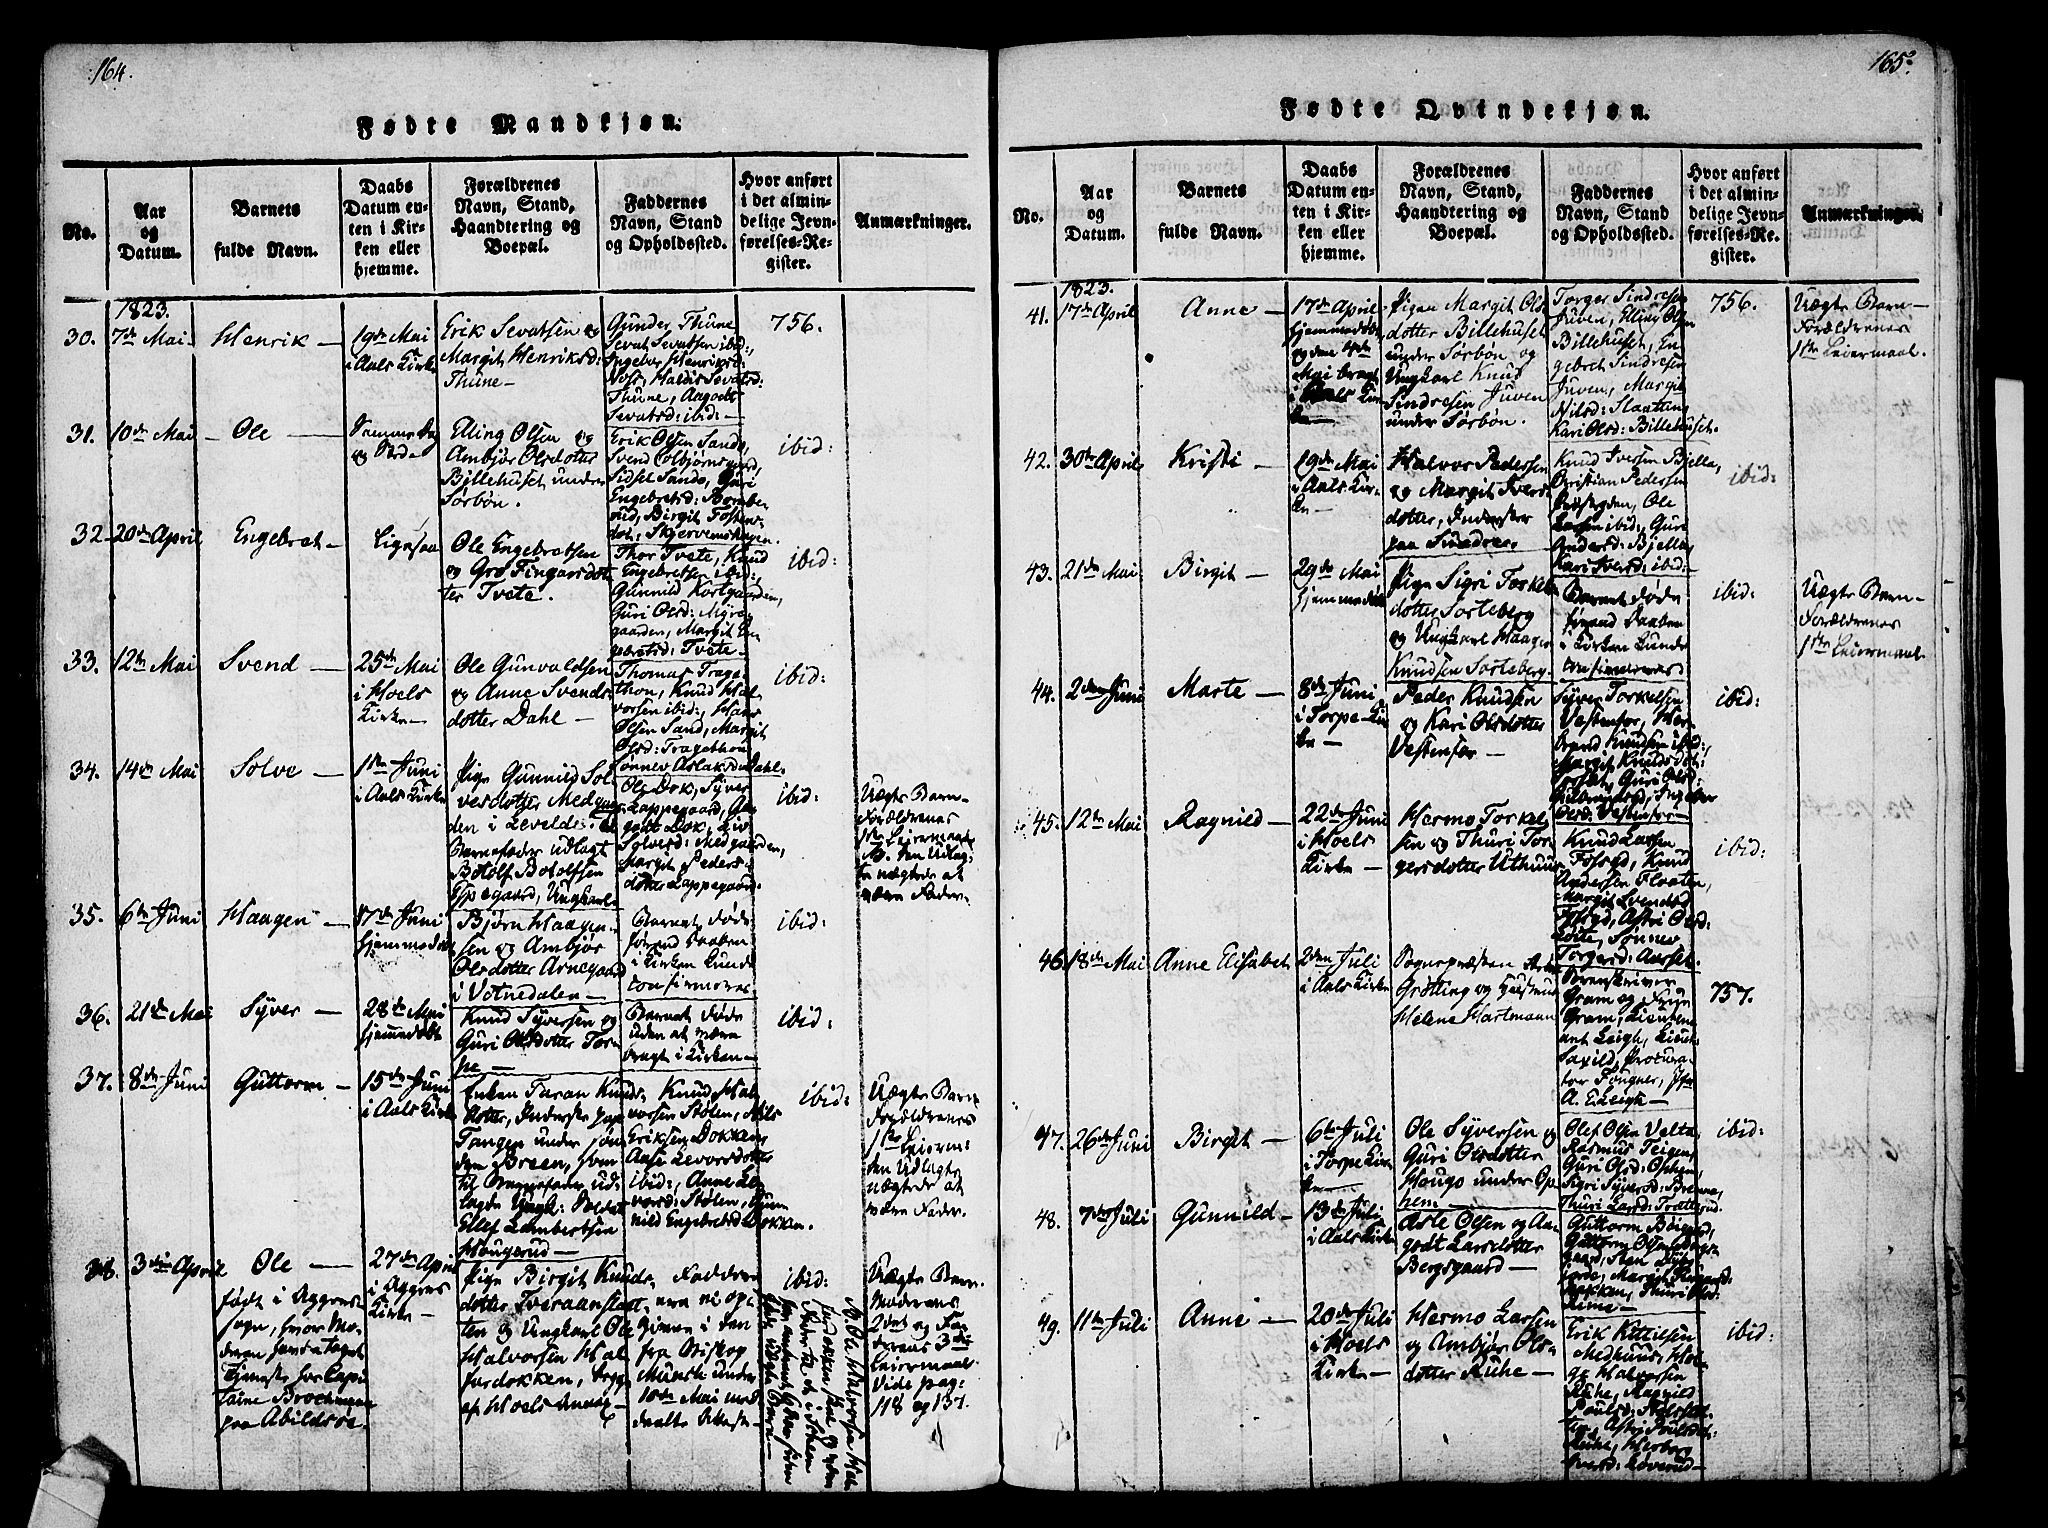 164.
Fødte Mandkjøn.
No.
Aar
og
Datum.
Barnets
fulde Navn.
Daabs
Datum en-
ten i Kir-
ken eller
hjemme.
Forældrenes
Navn, Stand,
Haandtering og
Boepæl.
Faddernes
Navn, Stand
og Opholdssted.
Hvor anført
i det almin-
delige Jevn-
førelses-Re-
gister.
Anmærkninger.
1823.
30.
7de Mai
Henrik
19de Mai
i Aals Kirke
Erik Sevatsen og
Margit Henriksd:
Thune
Gunder Thune
Sevat Sevatsen ibid:,
Ingebor Henriksd:
Noss, Haldis Sevatsd:
Thune, Aagodt
Sevatsd: ibid:
756.
31.
10de Mai
Ole
Samme Dag
Eling Olsen og
Ambjør Olsdotter
Billehuset under
Sørbøn.
Erik Olsen Sando,
Sidsel Sando, Guri
ibid:
32
20de April
Engebret
Ligesaa
Ole Engebretsen
og Gro Fingarsdot
ter Tvete.
Thor Tvete, Knud
Engebretsen ibid:,
Gunnild Kortgaarden,
Guri Olsd: Myre
gaarden, Margit En
gebretsd: Tvete
ibid:
33.
12te Mai
Svend
25de Mai
i Hoels
Kirke
Ole Gunvaldsen
og Anne Svends
dotter Dahl
Thomas Trage
thon, Knud Hal
vorsen ibid:, Hans
Olsen Sand, Margit
Olsd: Tragethon
Sønnev Aslaksd: Dahl.
ibid:
34.
14de Mai
Solve
1ste Juni
i Aals Kirke
Pige Gunnild Sol
versdotter Medgaar
den i Leveldes
Barnefader udlagt
Botolf Botolfsen
Ungkarl
Ole Dok, Syver
Lappegaard, Aa
godt Dok, Liv
Solversd: Medgaarden,
Margit Peders
dotter Lappegaard.
ibid:
Uægte Barn
Forældrenes
1ste Leiermaal
NB. den Udlag-
te nægtede at
være Fader.
35.
6te Juni
Haagen
17de Juni
hjemmedøbt
Bjørn Haagen
sen og Ambjør
Olsdotter Arnegaard
i Votnedalen
Barnet døde
førend Daaben
i Kirken kunde
confirmeres.
ibid:
36.
21de Mai
Syver
28de Mai
hjemmedøbt
Knud Syversen og
Guri Olsdotter Tor
pe
Barnet døde
uden at være
bragt i Kirken
ibid:
37.
8de Juni
Guttorm
15de Juni
i Aals Kirke
Enken Taran Knuds
dotter, Inderste paa
Tangen under
Breen, hvor
til Barnefader ud
lagde Ungk: Soldat
Ellef Lambertsen
Haugerud
Knud Hal
vorsen Stølen, Nils
Eriksen Dokken,
Aase Levorsdotter
ibid:, Anne Le
vorsd: Stølen, Gun
nild Engebretsd Dokken.
ibid:
Uægte Barn
Forældrenes
1ste Leierm:
den Udlagte
nægtede at
være Fader.
38.
3die April
Ole
født i Aggers
sogn, hvor Mo
deren havde taget
Tjeneste hos Capi
taine Brochmann
paa Abildsøe.
27de April
i Aggers
Kirke
Pige Birgit Knuds
dotter Tveraanslatt
ten og Ungkarl Ole
Halvorsen Hal
fardokken, begge
af Hoels Annex
Faddere
ne ere ei op
givne i den
fra Biskop
Munch under
10de Mai med
deelte Attest
ibid:
Uægte Barn.
Moderens
2det og Fa
derens 3die
Leiermaal
Vide pag:
118 og 137.
165.
Fødte Qvindekjøn.
No.
Aar
og
Datum.
Barnets
fulde Navn.
Daabs
Datum en-
ten i Kir-
ken eller
hjemme.
Forældrenes
Navn, Stand,
Haandtering og
Boepæl.
Faddernes
Navn, Stand
og Opholdssted.
Hvor anført
i det almin-
delige Jevn-
førelses-Re-
gister.
Anmærkninger.
1823.
41.
17de April
Anne
17de April
hjemmedøbt
og den 4de
Mai bragt
i Aals Kir
ke
Pigen Margit Ols
dotter Billehuset
under Sørbøn og
Ungkarl Knud
Sindresen Juven
under Sørbøn.
Torger Sindresen
Juven, Elling Olsen
Billehuset, En
gebret Sindresen
Juven, Margit
Nilsd: Slaatting
Kari Olsd: Billehuset.
756.
Uægte Barn
Forældrenes
1ste Leiermaal.
42.
30te April
Kristi
19de Mai
i Aals Kir
ken
Halvor Pedersen
og Margit Ivers
dotter, Inderster
paa Sundree.
Knud Iversen Bjella,
Christian Pedersen
Ole
Larsen ibid:, Guri
Andersd: Bjella,
Kari Iversd: ibid:
ibid:
43.
21de Mai
Birgit
29de Mai
hjemmedøbt
Pige Sigri Torkels
dotter Sorteberg
og Ungkarl Haagen
Knudsen Sorteberg
Barnet døde
førend Daaben
i Kirken kunde
confirmeres
ibid:
Uægte Barn
Forældrenes
1ste Leiermaal
44.
2den Juni
Marte
8de Juni
i Torpe Kir
ke
Peder Knudsen
og Kari Olsdotter
Vestenfor
Syver Torkelsen
Vestenfor, Her
brand Knudsen ibid:,
Margit Knudsdot:
ibid:
45.
12te Mai
Ragnild
22de Juni
i Hoels
Kirke
Hermo Torkel
sen og Thuri Tor
gersdotter Uthuus
Knud Larsen
Fosgd, Knud
Andersen Floaten,
Margit Svendsd
Fosgd, Astri Olsd
Sønnev
Torgersd: Aarset.
ibid:
46.
18de Mai
Anne Elisabet
2den Juli
i Aals Kirke
Sognepræsten
Grøtting og Hustrue
Helene Hartmann
Sorenskriver
Gram og Frue
Gram, Lieuten
ant Leigh, Lieut:
Saxild, Procura
tor Fougner, Jfr
A. E. Leigh
757.
47.
26de Juni
Birgit
6te Juli
i Torpe Kir
ke
Ole Syversen og
Guri Olsdotter
Haugo under Op
hem.
Olef Olsen Velta,
Rasmus Teigen,
Guri Olsd: Ophem,
Sigri Syversd: Brenna,
Thuri Larsd: Trætterud.
ibid:
48.
7de Juli
Gunnild
13de Juli
i Aals Kirke
Asle Olsen og Aa
godt Larsdotter
Bergsgaard
49.
11te Juli
Anne
20de Juli
i Hoels
Kirke
Hermo Larsen
og Ambjør Ols
dotter Ruhe
Erik Kittilsen
Medhuus, Hel
ge Halvorsen
Ruhe, Ragnild
ibid: